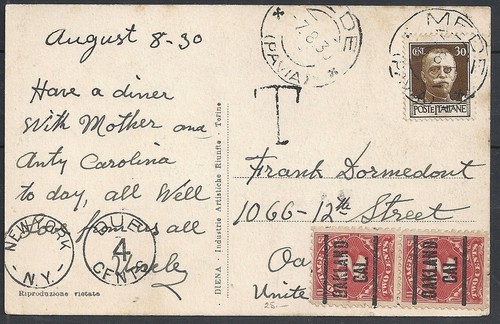 August 8-30
Have a diner
With Mother and
Anty Carolina
to day, all Well
Love from us all
NEW YORK
N.Y.
DUE
4
CENTS
Riproduzione vietata
DIENA - Industrie Artistiche Riunite - Torino
MEDE
(PAVIA)
7.8.30
T
MEDE
CENT 30
POSTE ITALIANE
Frank Dormedout
1066-12th Street
Oa
Unite
OAKLAND
CAL.
OAKLAND
CAL.
TWO CENTS
25.-